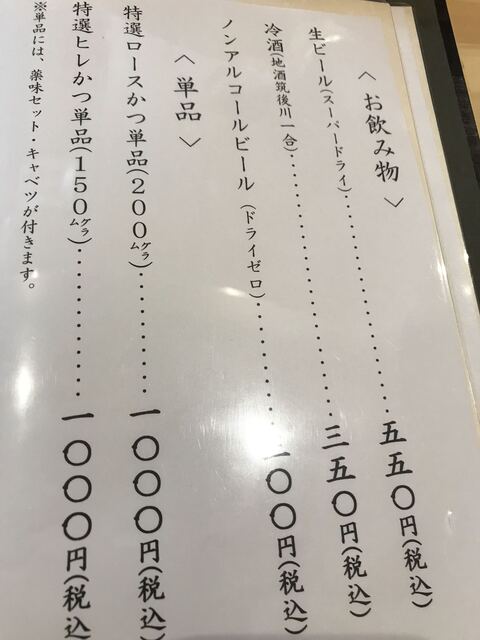 〈お飲み物〉
生ビール(スーパードライ)……………………五五〇円(税込)
冷酒(地酒筑後川一合)……………………三五〇円(税込)
ノンアルコールビール (ドライゼロ)……………〇〇円(税込)
〈単品〉
特選ロースかつ単品(200グラム)……………一〇〇〇円(税込
特選ヒレかつ単品(150グラム)……………一〇〇〇円(税込
※単品には、薬味セット・キャベツが付きます。